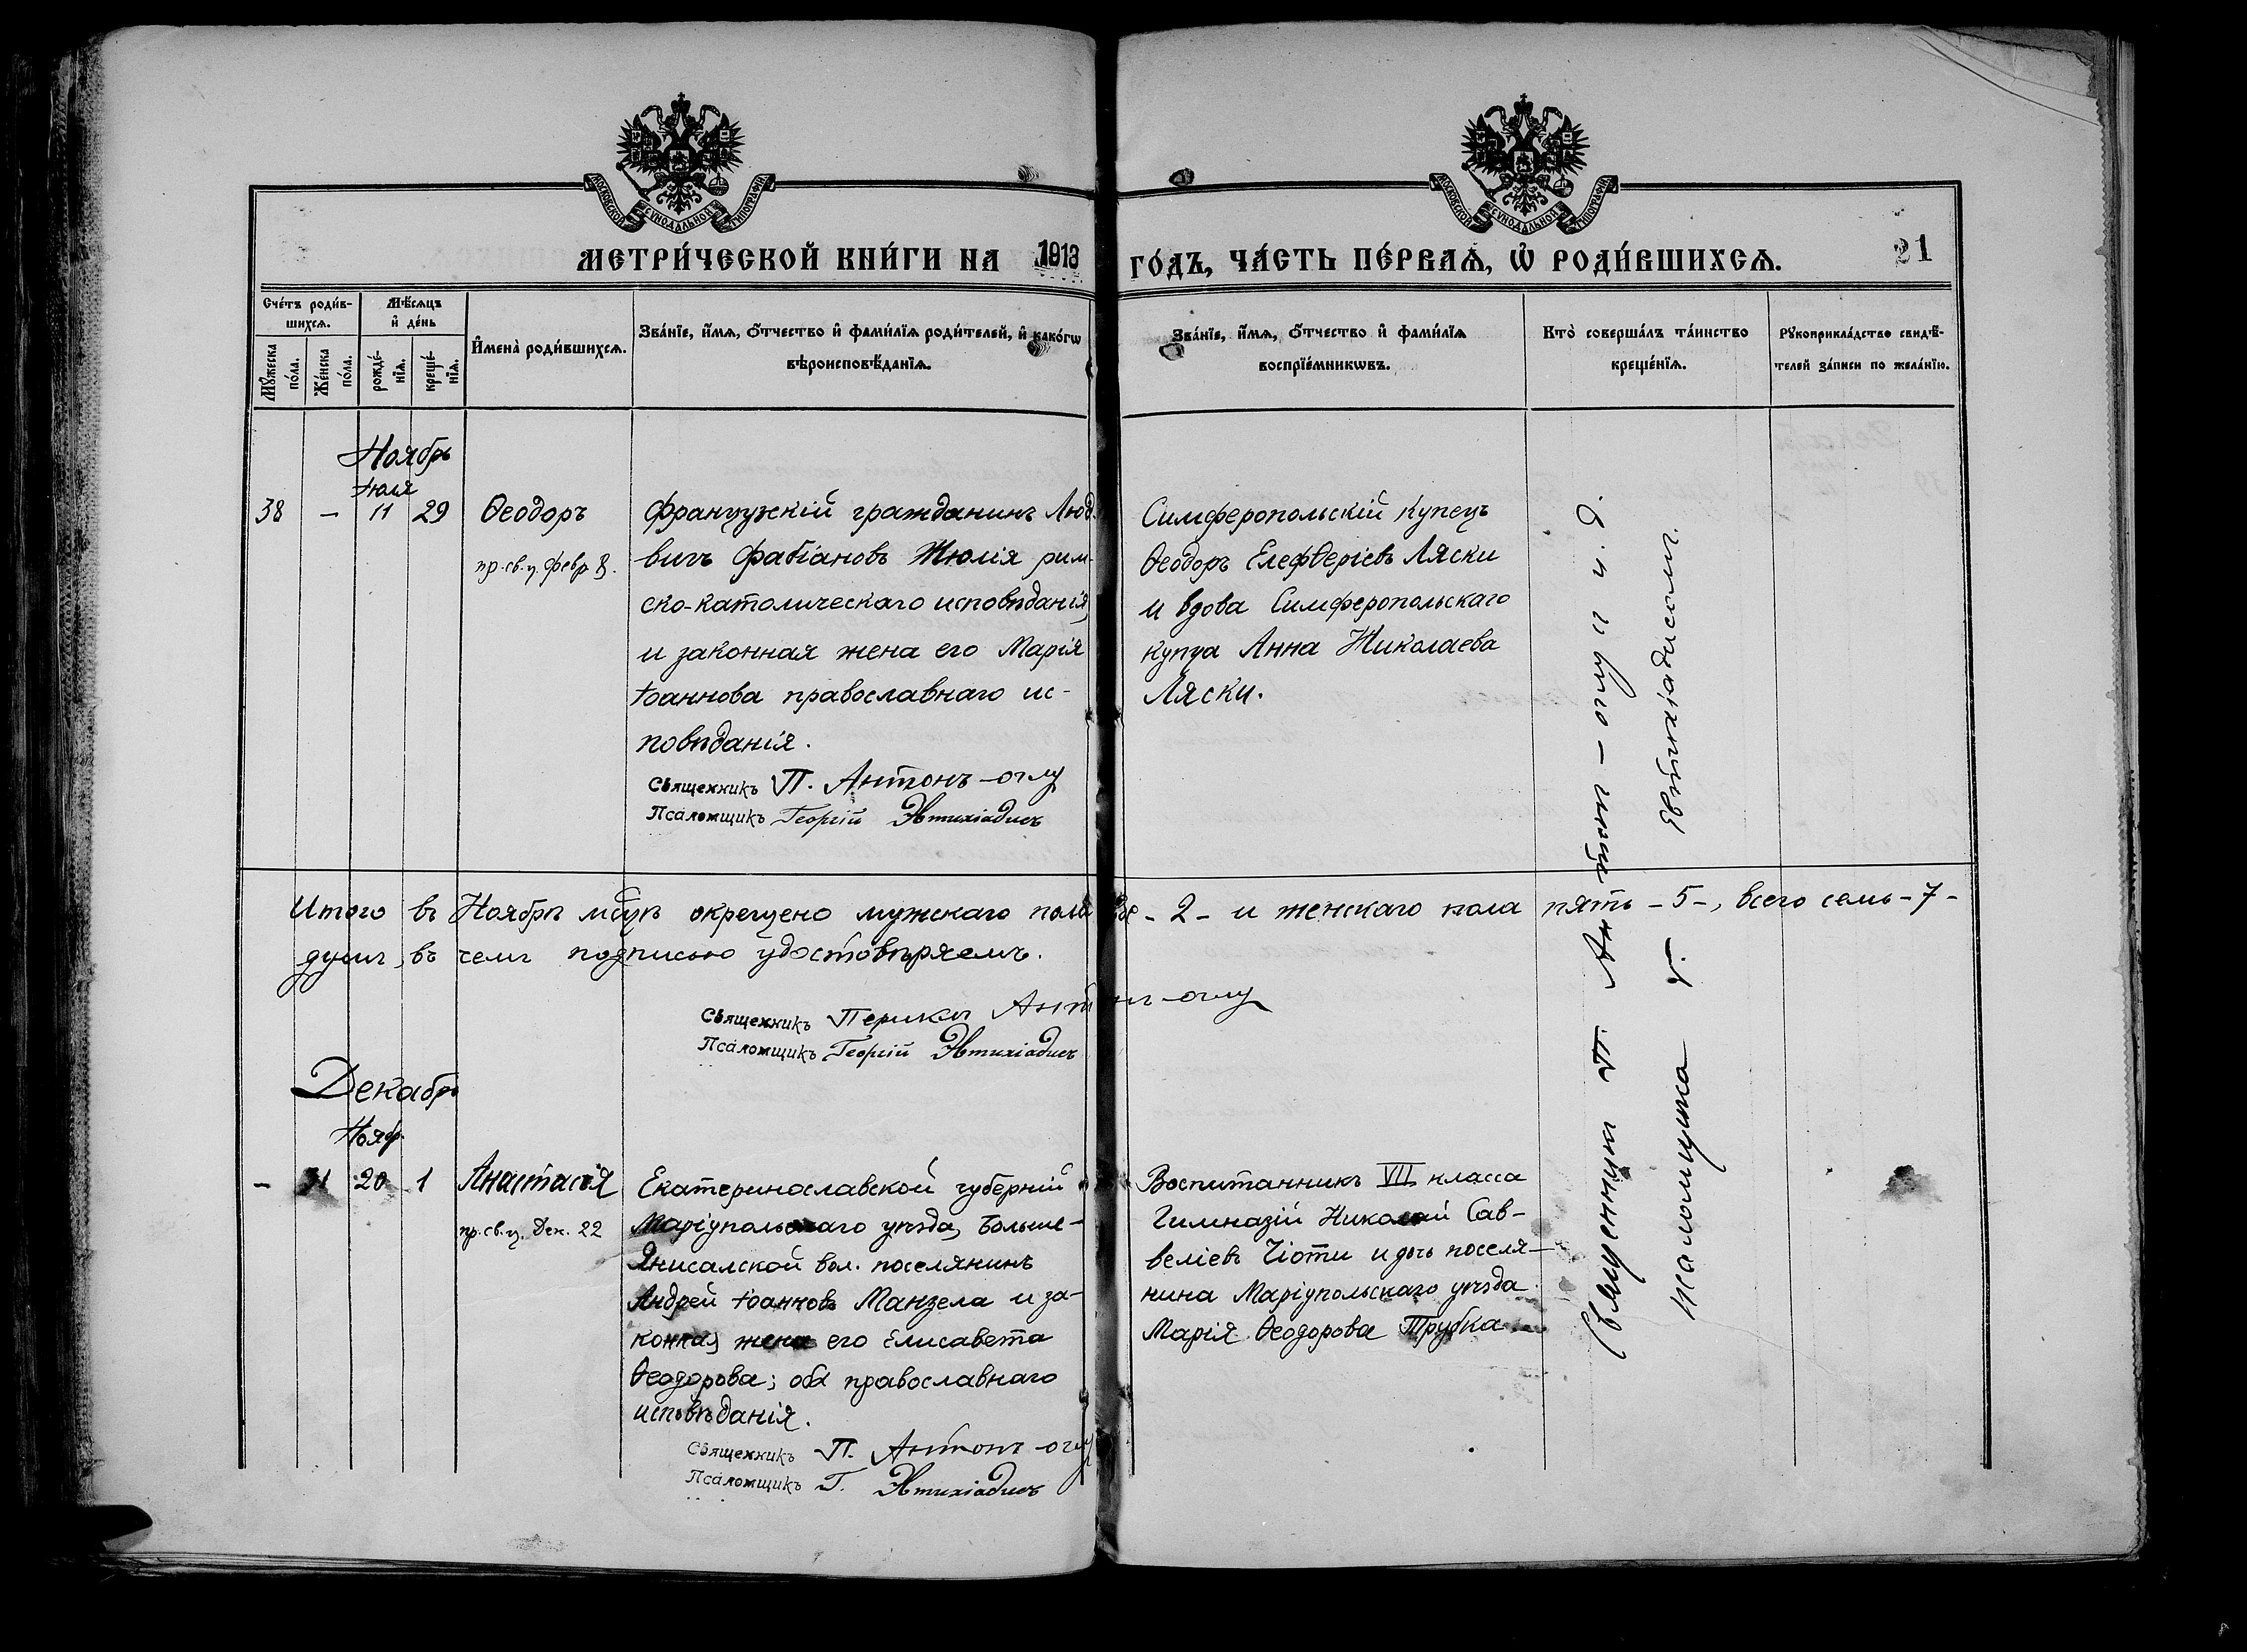 МОСКОВСКОЙ СѴНОДАЛЬНОЙ ТИПОГРАФІИ
МОСКОВСКОЙ СѴНОДАЛЬНОЙ ТИПОГРАФІИ
МЕТРИ́ЧЕСКОЙ КНИ́ГИ НА 1913 ГО́ДЪ, ЧА́СТЬ ПЕ́РВАѦ, Ѡ҆ РОДИ́ВШИХСѦ.
21
Сче́тъ роди́в-
шихсѧ.
Мѣ́сѧцъ
и҆ де́нь
Мꙋ́жеска
по́ла.
Же́нска
по́ла.
рожде́-
нїѧ.
креще́-
нїѧ.
И҆мена̀ роди́вшихсѧ.
Зва́нїе, и҆́мѧ, ѻ҆́тчество и҆ фами́лїѧ роди́телей, и҆ како́гѡ
вѣроисповѣ́данїѧ.
Зва́нїе, и҆́мѧ, ѻ҆́тчество и҆ фами́лїѧ
воспрїе́мникѡвъ.
Кто̀ соверша́лъ та́инство
креще́нїѧ.
Рꙋкоприкла́дство свидѣ́-
телей за́писи по жела́нїю.
Ноябрь
Іюля
38 – 11 29 Ѳеодоръ
пр. св. ц. февр. 8.
Французскій гражданинъ Люд-
вигъ Фабіановъ Жюлія рим-
ско-католическаго исповѣданія,
и законная жена его Марія
Іоаннова православнаго ис-
повѣданія.
Священникъ П. Антонъ-оглу
Псаломщикъ Георгій Эвтихіадисъ
Симферопольскій купецъ
Ѳеодоръ Елефѳеріевъ Ляски
и вдова Симферопольскаго
купца Анна Николаева
Ляски.
Священникъ П. Антонъ-оглу и и. д.
псаломщика Г. Евтихіадисомъ.
Итого въ Ноябрѣ мѣсяцѣ окрещено мужскаго пола два - 2 - и женскаго пола пять - 5 -, всего семь - 7 -
душъ, въ чемъ подписью удостовѣряемъ.
Священникъ Периклъ Антонъ-оглу
Псаломщикъ Георгій Эвтихіадисъ
Декабрь
Нояб.
– 31 20 1 Анастасія
пр. св. ц. Дек. 22
Екатеринославской губерніи
Маріупольскаго уѣзда, Больше-
Янисалской вол. поселянинъ
Андрей Іоанновъ Манзела и за-
конная жена его Елисавета
Ѳеодорова; оба православнаго
исповѣданія.
Священникъ П. Антонъ-оглу
Псаломщикъ Г. Эвтихіадисъ
Воспитанникъ VII класса
Гимназій Николай Сав-
веліевъ Чіоти и дочь поселя-
нина Маріупольскаго уѣзда
Марія Ѳеодорова Трубка